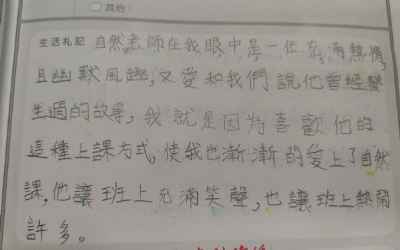 其他：
生活札記 自然老師在我眼中是一位充滿熱情，
且幽默風趣，又愛和我們說他曾經發
生過的故事，我就是因為喜歡他的
這種上課方式，使我也漸漸的愛上了自然
課，他讓班上充滿笑聲，也讓班上熱鬧
許多。